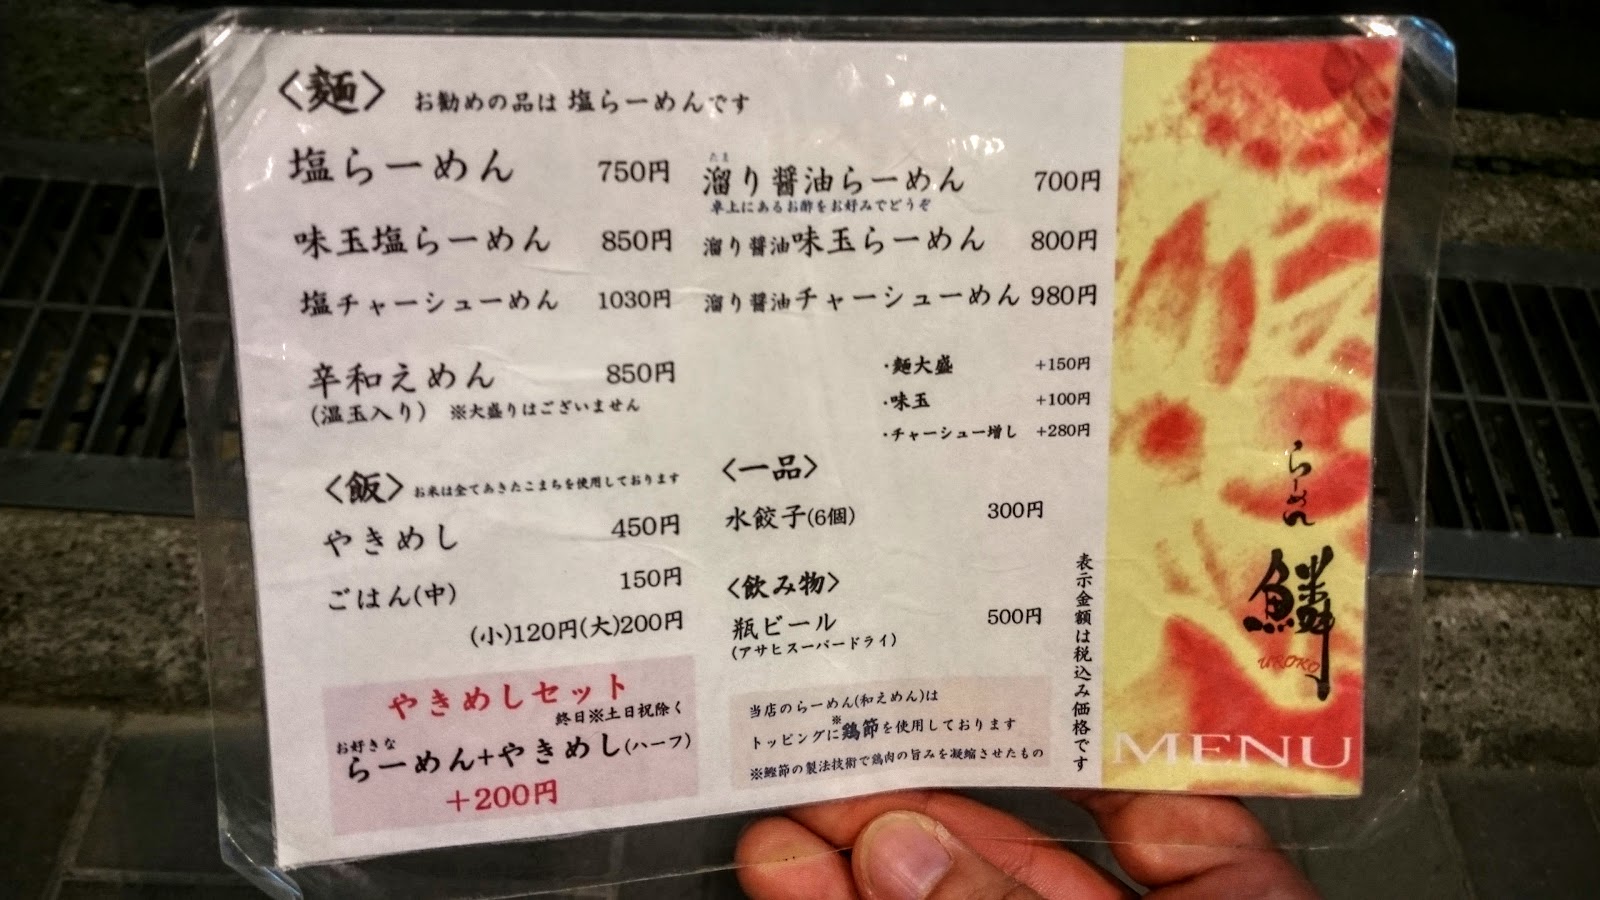 <麺> お勧めの品は 塩らーめんです
塩らーめん 750円
味玉塩らーめん 850円
塩チャーシューめん 1030円
辛和えめん 850円
(温玉入り) ※大盛りはございません
たま
溜り醤油らーめん 700円
卓上にあるお酢をお好みでどうぞ
溜り醤油味玉らーめん 800円
溜り醤油チャーシューめん 980円
・麺大盛 +150円
・味玉 +100円
・チャーシュー増し +280円
<飯> お米は全てあきたこまちを使用しております
やきめし 450円
ごはん(中) 150円
(小)120円(大)200円
やきめしセット
終日※土日祝除く
お好きな
らーめん+やきめし(ハーフ)
+200円
<一品>
水餃子(6個) 300円
<飲み物>
瓶ビール 500円
(アサヒスーパードライ)
当店のらーめん(和えめん)は
※
トッピングに鶏節を使用しております
※鰹節の製法技術で鶏肉の旨みを凝縮させたもの
表示金額は税込み価格です
らーめん
鱗
UROKO
MENU